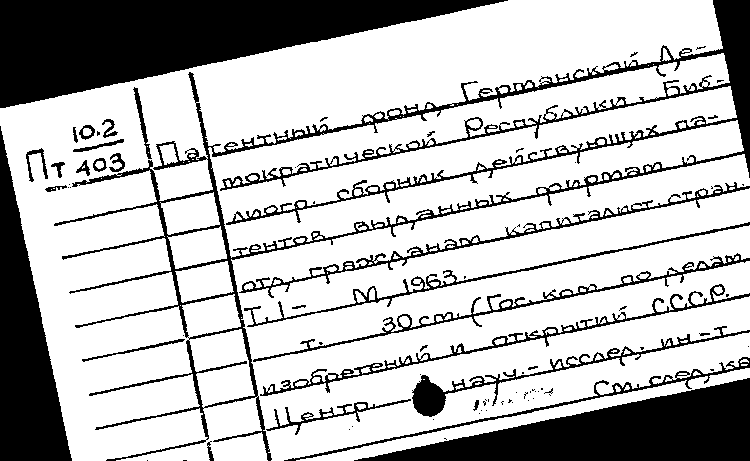 10.2
Пт 403
Патентный фонд Германской Де-
мократической Республики. Биб-
лиогр. сборник действующих па-
тентов, выданных фирмам и
отд. гражданам капиталист. стран.
Т. 1 - М., 1963.
т. 30 см. (Гос. ком по делам
изобретений и открытий СССР.
Центр. науч.-исслед. ин-т
См. след. ка